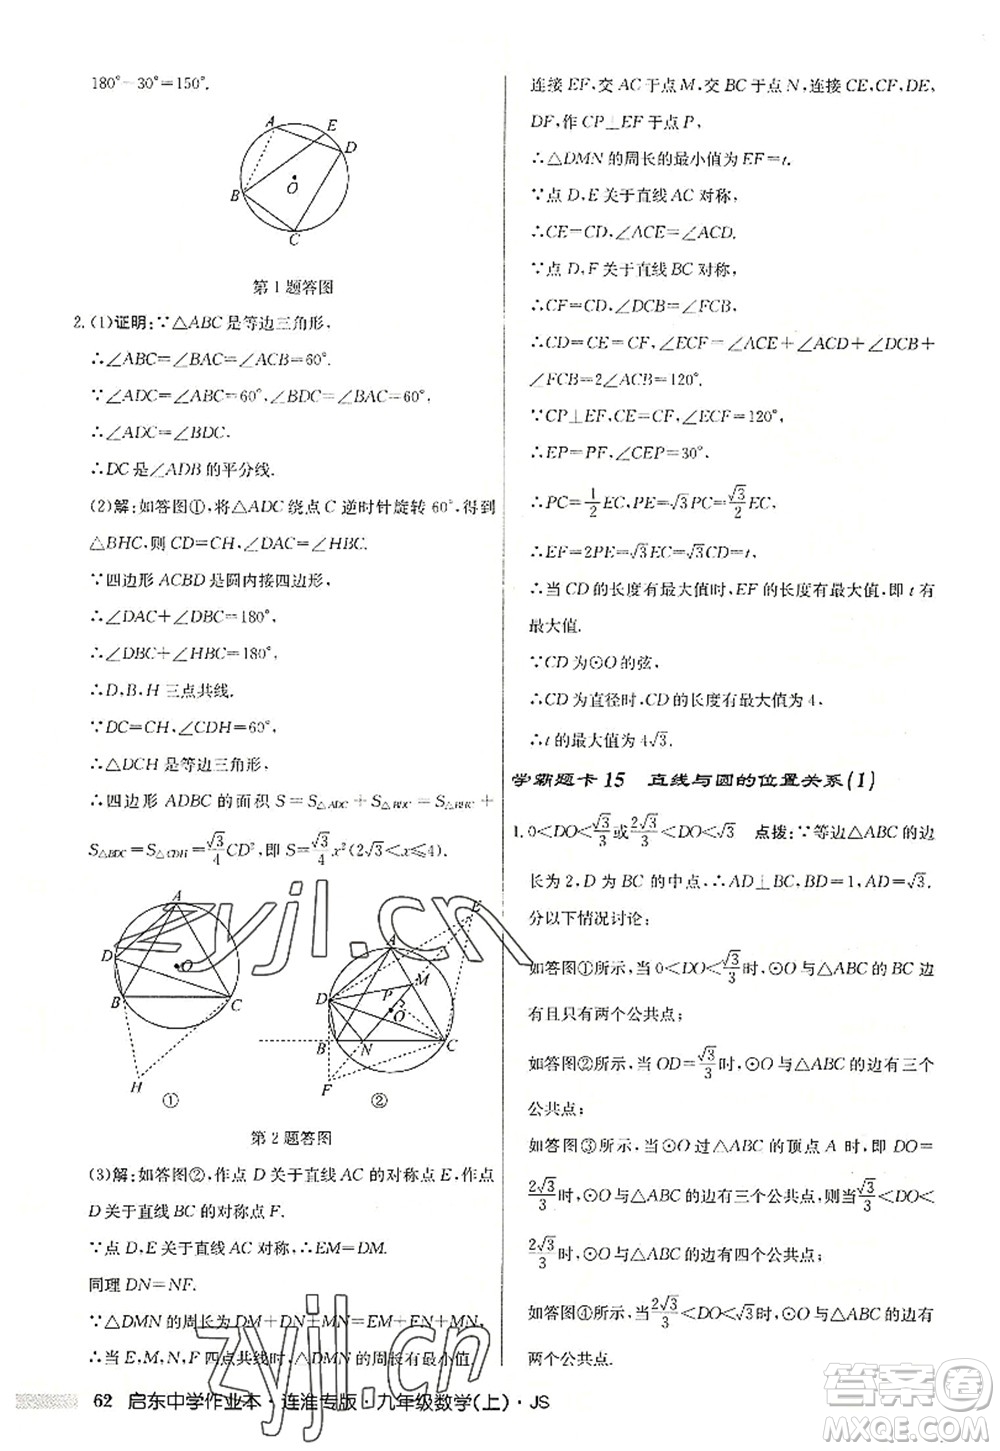 180°－30°＝150°.
A
E
D
O
B
C
第1题答图
2.(1)证明:∵△ABC是等边三角形,
∴∠ABC＝∠BAC＝∠ACB＝60°.
∵∠ADC＝∠ABC＝60°,∠BDC＝∠BAC＝60°,
∴∠ADC＝∠BDC.
∴DC是∠ADB的平分线.
(2)解:如答图①,将△ADC绕点C逆时针旋转60°,得到
△BHC,则CD＝CH,∠DAC＝∠HBC.
∵四边形ACBD是圆内接四边形,
∴∠DAC＋∠DBC＝180°.
∴∠DBC＋∠HBC＝180°.
∴D,B,H三点共线.
∵DC＝CH,∠CDH＝60°,
∴△DCH是等边三角形.
∴四边形ADBC的面积S＝S△ADC＋S△BDC＝S△CDH＝√3/4 CD²,即S＝√3/4 x²(2√3＜x≤4).
A
D
O
B
C
H
①
E
A
M
D
P
O
B
N
C
F
②
第2题答图
(3)解:如答图②,作点D关于直线AC的对称点E,作点
D关于直线BC的对称点F.
∵点D,E关于直线AC对称,∴EM＝DM.
同理DN＝NF.
∵△DMN的周长为DM＋DN＋MN＝EM＋FN＋MN,
∴当E,M,N,F四点共线时,△DMN的周长有最小值.
连接EF,交AC于点M,交BC于点N,连接CE,CF,DE,
DF,作CP⊥EF于点P,
∴△DMN的周长的最小值为EF＝t.
∵点D,E关于直线AC对称,
∴CE＝CD,∠ACE＝∠ACD.
∵点D,F关于直线BC对称,
∴CF＝CD,∠DCB＝∠FCB.
∴CD＝CE＝CF,∠ECF＝∠ACE＋∠ACD＋∠DCB＋
∠FCB＝2∠ACB＝120°.
∵CP⊥EF,CE＝CF,∠ECF＝120°,
∴EP＝PF,∠CEP＝30°.
∴PC＝1/2 EC,PE＝√3PC＝√3/2 EC.
∴EF＝2PE＝√3EC＝√3CD.
∴当CD的长度有最大值时,EF的长度有最大值,即t有
最大值.
∵CD为⊙O的弦,
∴CD为直径时,CD的长度有最大值为4,
∴t的最大值为4√3.
学霸题卡15 直线与圆的位置关系(1)
1.0＜DO＜√3/3或2√3/3＜DO＜√3 点拨:∵等边△ABC的边
长为2,D为BC的中点,∴AD⊥BC,BD＝1,AD＝√3.
分以下情况讨论:
如答图①所示,当0＜DO＜√3/3时,⊙O与△ABC的边
有且只有两个公共点;
如答图②所示,当OD＝√3/3时,⊙O与△ABC的边有三个
公共点;
如答图③所示,当⊙O过△ABC的顶点A时,即DO＝
2√3/3时,⊙O与△ABC的边有三个公共点,则当√3/3＜DO＜
2√3/3时,⊙O与△ABC的边有四个公共点;
如答图④所示,当2√3/3＜DO＜√3时,⊙O与△ABC的边有
两个公共点.
62 启东中学作业本·连淮专版·九年级数学(上)·JS
zyjl.cn
zyjl.cn
答案圈
MXQE.COM